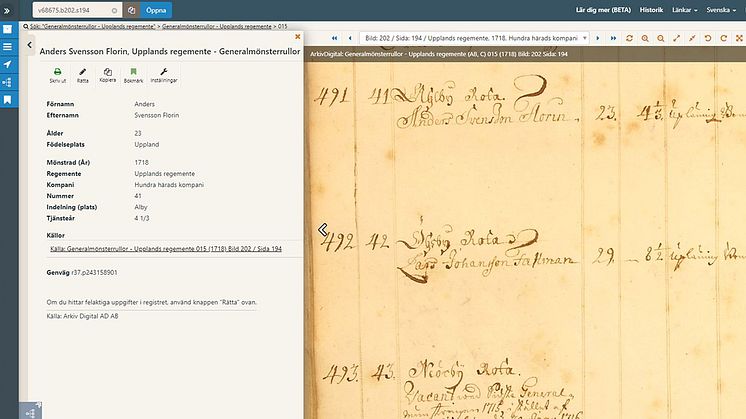 v68675.b202.s194
Öppna
Lär dig mer (BETA)
Historik
Länkar
Svenska
Sök: "Generalmönsterrullor - Upplands regemente" > Generalmönsterrullor - Upplands regemente > 015
Anders Svensson Florin, Upplands regemente - Generalmönsterrullor
Skriv ut
Rätta
Kopiera
Bokmärk
Inställningar
Förnamn Anders
Efternamn Svensson Florin
Ålder 23
Födelseplats Uppland
Mönstrad (År) 1718
Regemente Upplands regemente
Kompani Hundra härads kompani
Nummer 41
Indelning (plats) Alby
Tjänsteår 4 1/3
Källor
Källa: Generalmönsterrullor - Upplands regemente 015 (1718) Bild 202 / Sida 194
Genväg r37.p243158901
Om du hittar felaktiga uppgifter i registret, använd knappen "Rätta" ovan.
Källa: Arkiv Digital AD AB
Bild: 202 / Sida: 194 / Upplands regemente, 1718, Hundra härads kompani
ArkivDigital: Generalmönsterrullor - Upplands regemente (AB, C) 015 (1718) Bild: 202 Sida: 194
491 41 Rota
Anders Svensson Florin 23.
492 42 Rota
Lars Johansson 29. 8½
493. 43. Rota.
Vacant